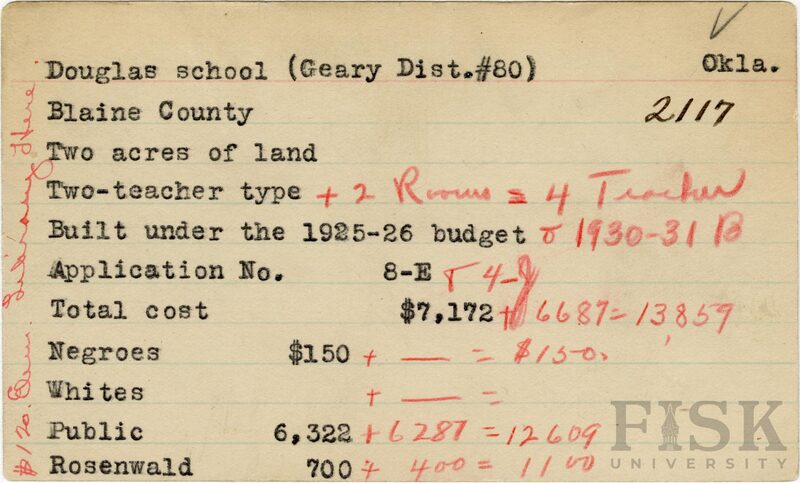 Okla.
Douglas school (Geary Dist.#80)
Blaine County 2117
Two acres of land
Two-teacher type + 2 Rooms = 4 Teacher
Built under the 1925-26 budget & 1930-31 B
Application No. 8-E & 4-J
Total cost $7,172 + 6687 = 13,859
Negroes $150 + — = $150.
Whites + — =
Public 6,322 + 6287 = 12609
Rosenwald 700 + 400 = 1100
$120. Library Here.
FISK
UNIVERSITY